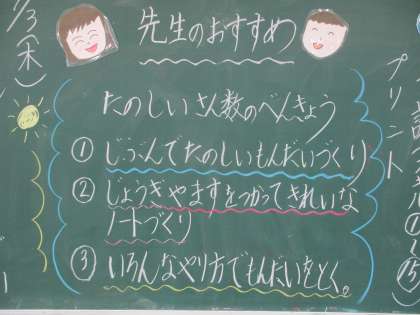 先生のおすすめ
たのしいさん数のべんきょう
① じぶんでたのしいもんだいづくり
② じょうぎやますをつかってきれいな
ノートづくり
③ いろんなやり方でもんだいをとく。
/3(木)
プリント
⑮